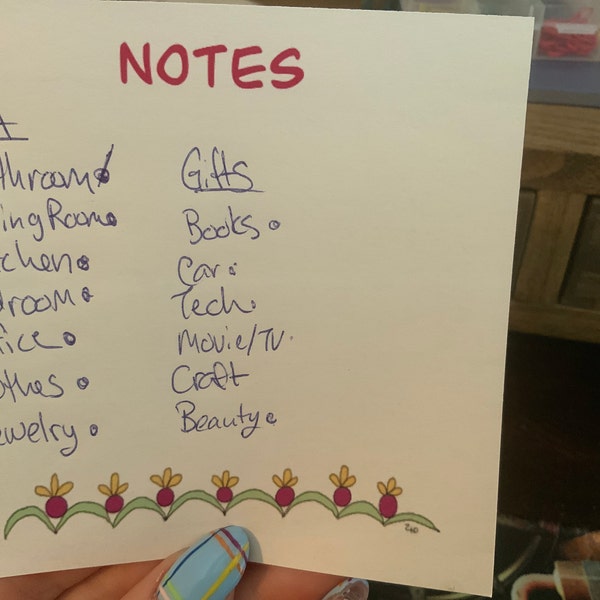 NOTES
throom
ingRoom
chen
droom
ice
othes
ewelry
Gifts
Books
Car
Tech
Movie/TV
Craft
Beauty